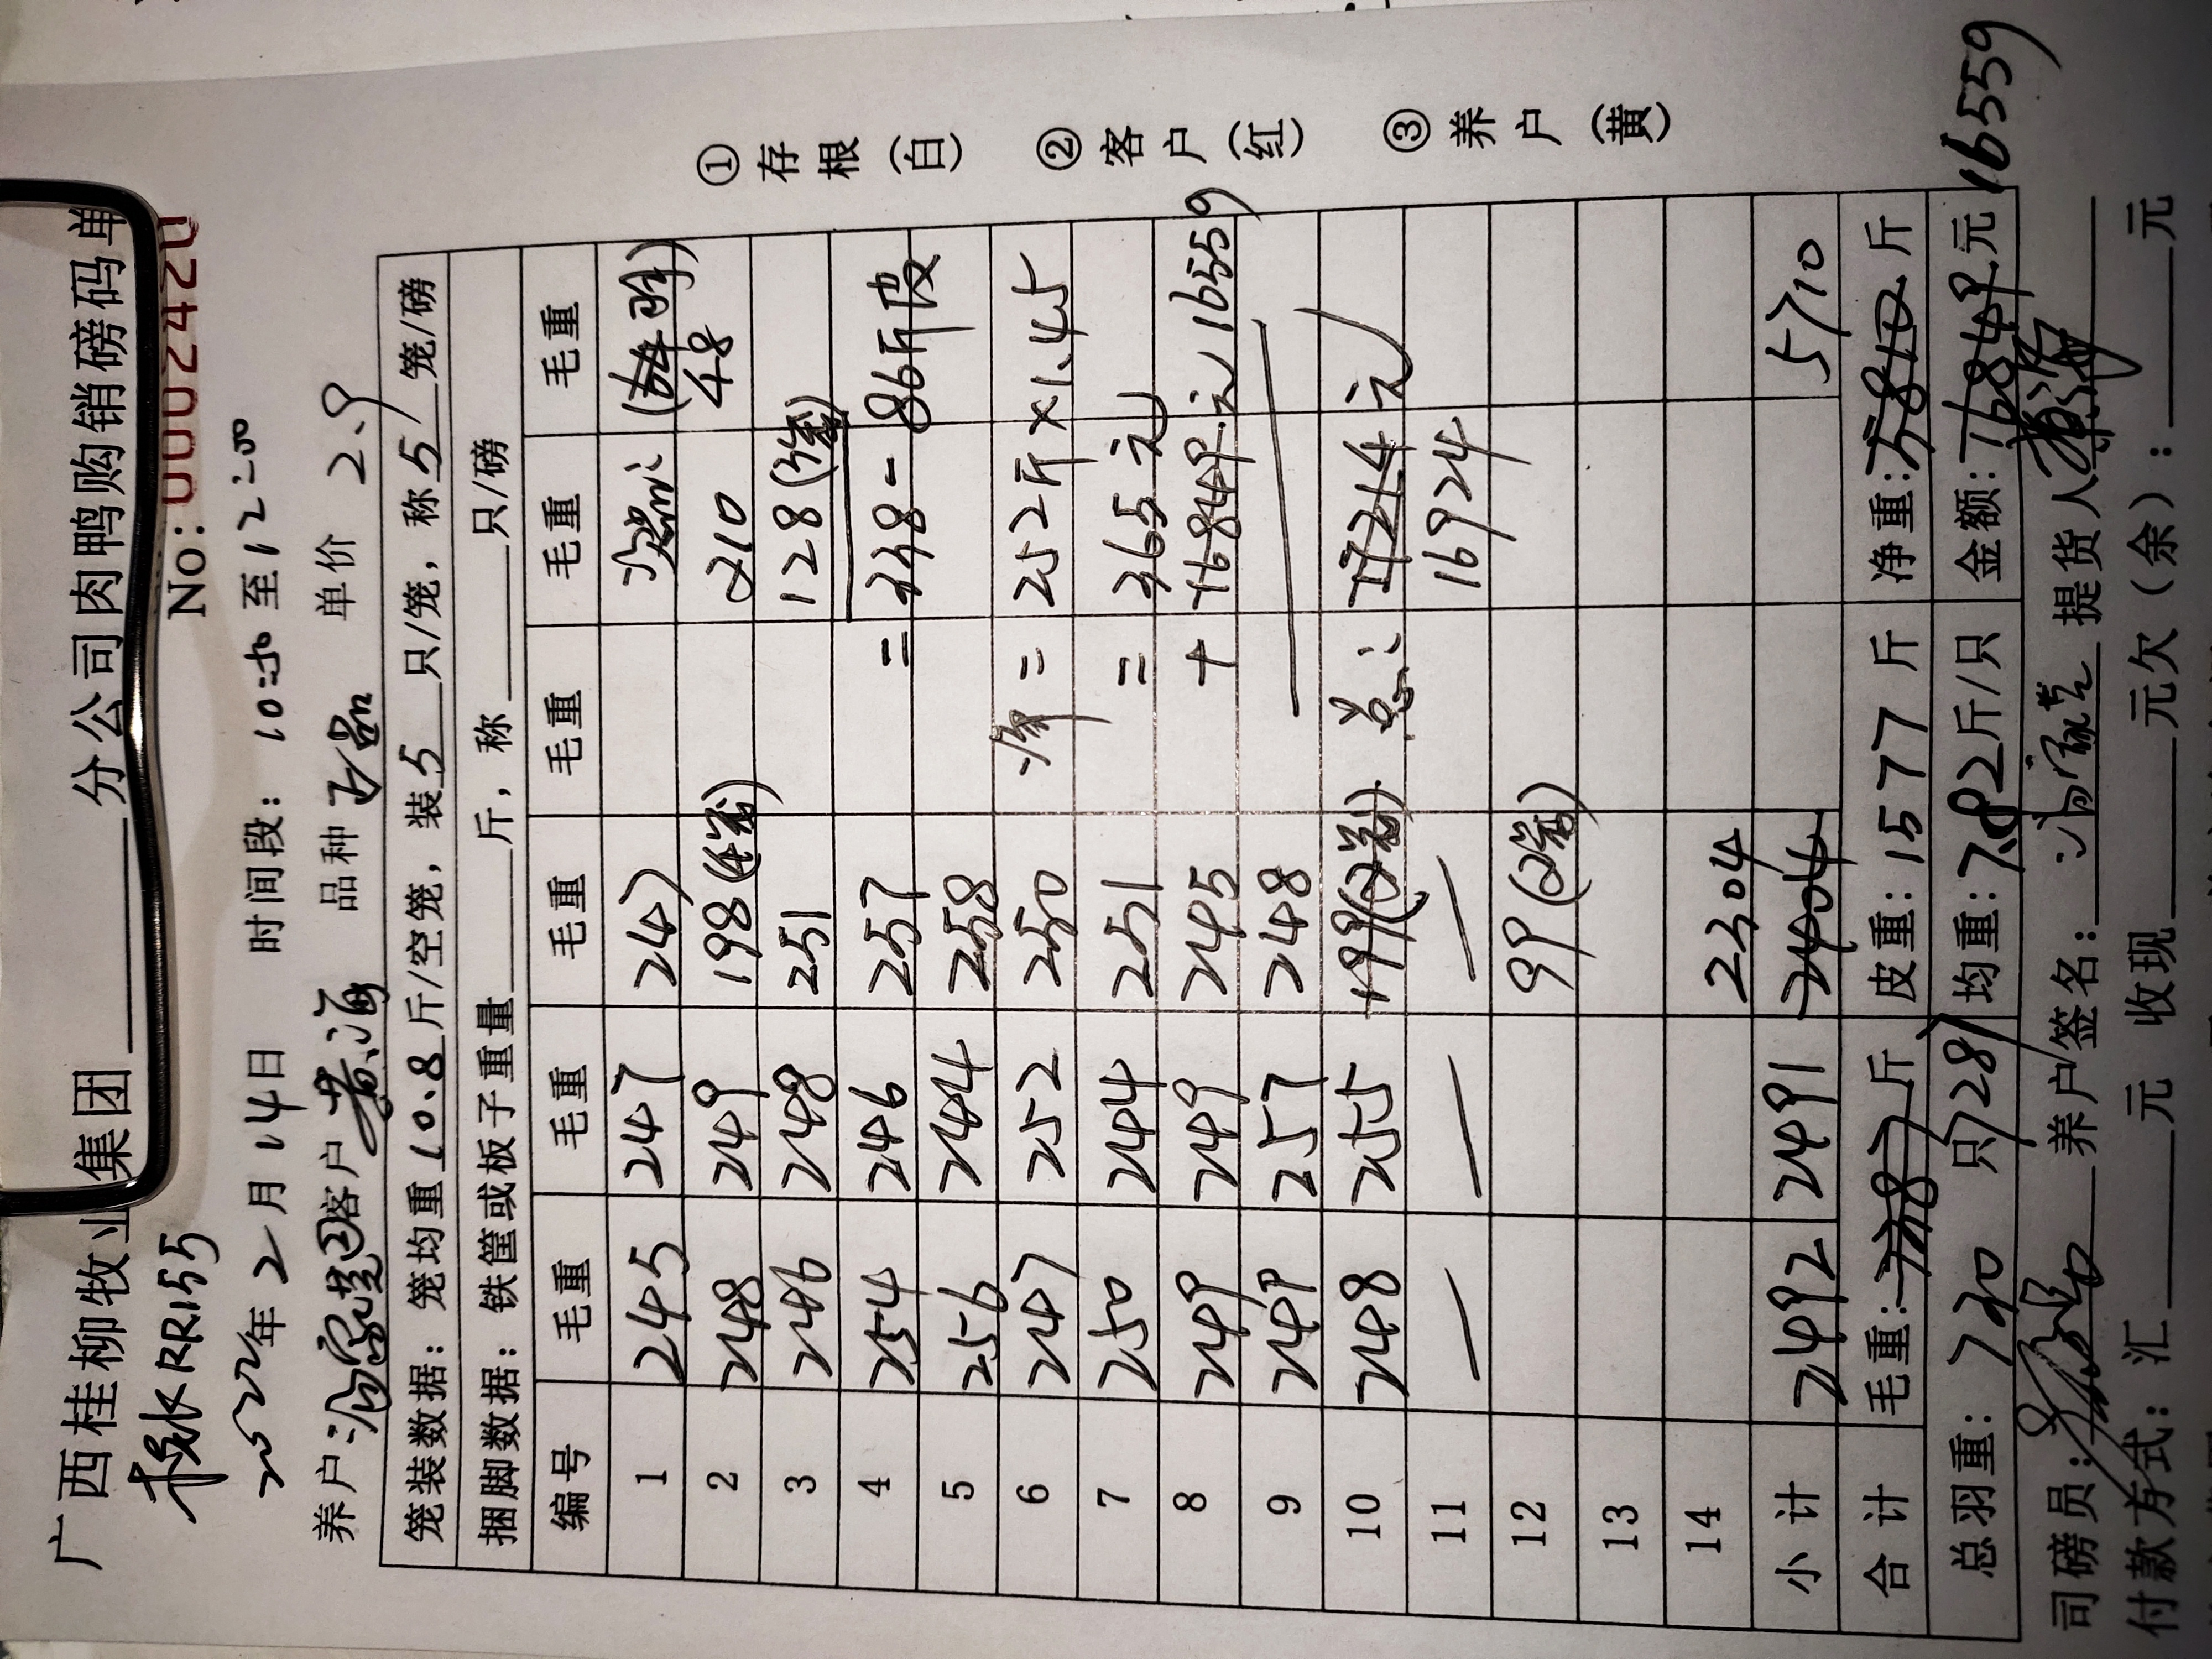 广西桂柳牧业集团 分公司肉鸭购销磅码单
RR155 No: 0002420
2022年2月14日 时间段: 10:50至12:00
养户: 客户 黄海 品种 正品 单价 2.9
笼装数据: 笼均重10.8斤/空笼, 装5只/笼, 称5笼/磅
捆脚数据: 铁筐或板子重量 斤, 称 只/磅
编号 毛重 毛重 毛重 毛重 毛重 毛重
1 245 247 247 次品:
2 248 249 198(4笼) 210 48
3 246 248 251 128(3笼)
4 254 246 257 =338-86斤皮
5 256 244 258
6 247 252 250 净=252斤×1.45
7 250 244 251 =365元
8 249 249 245 +16849元 16559
9 249 257 248
10 248 255 199(2笼) 总: 17214元
11 — — — 16924
12 99(2笼)
13
14 2304
小计 2492 2491 2404 5710
合计 毛重: 7387斤 皮重: 1577斤 净重: 5810斤
总羽重: 730只 7281 均重: 7.82斤/只 金额: 16849元 16559
司磅员: 养户签名: 提货人 黄海
付款方式: 汇 元 收现 元欠(余): 元
①存根(白) ②客户(红) ③养户(黄)